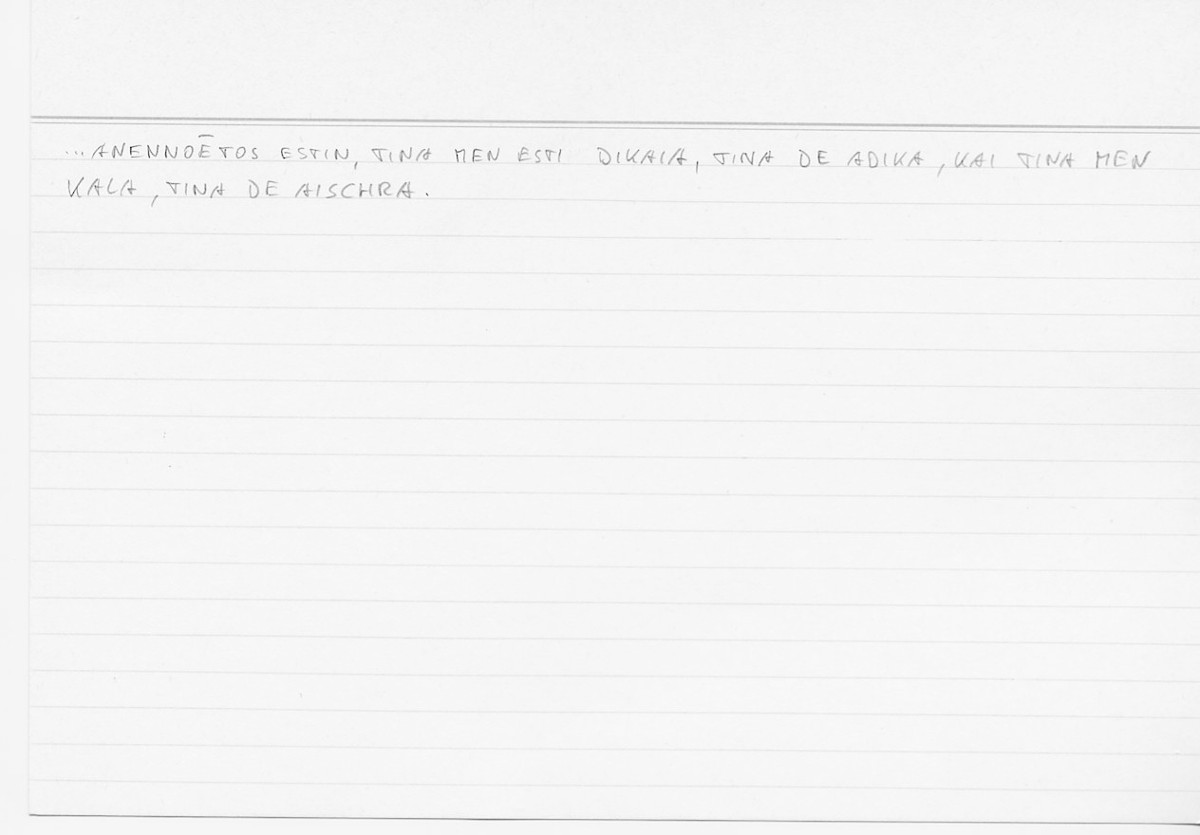 ...ANENNOĒTOS ESTIN, TINA MEN ESTI DIKAIA, TINA DE ADIKA, KAI TINA MEN
KALA, TINA DE AISCHRA.